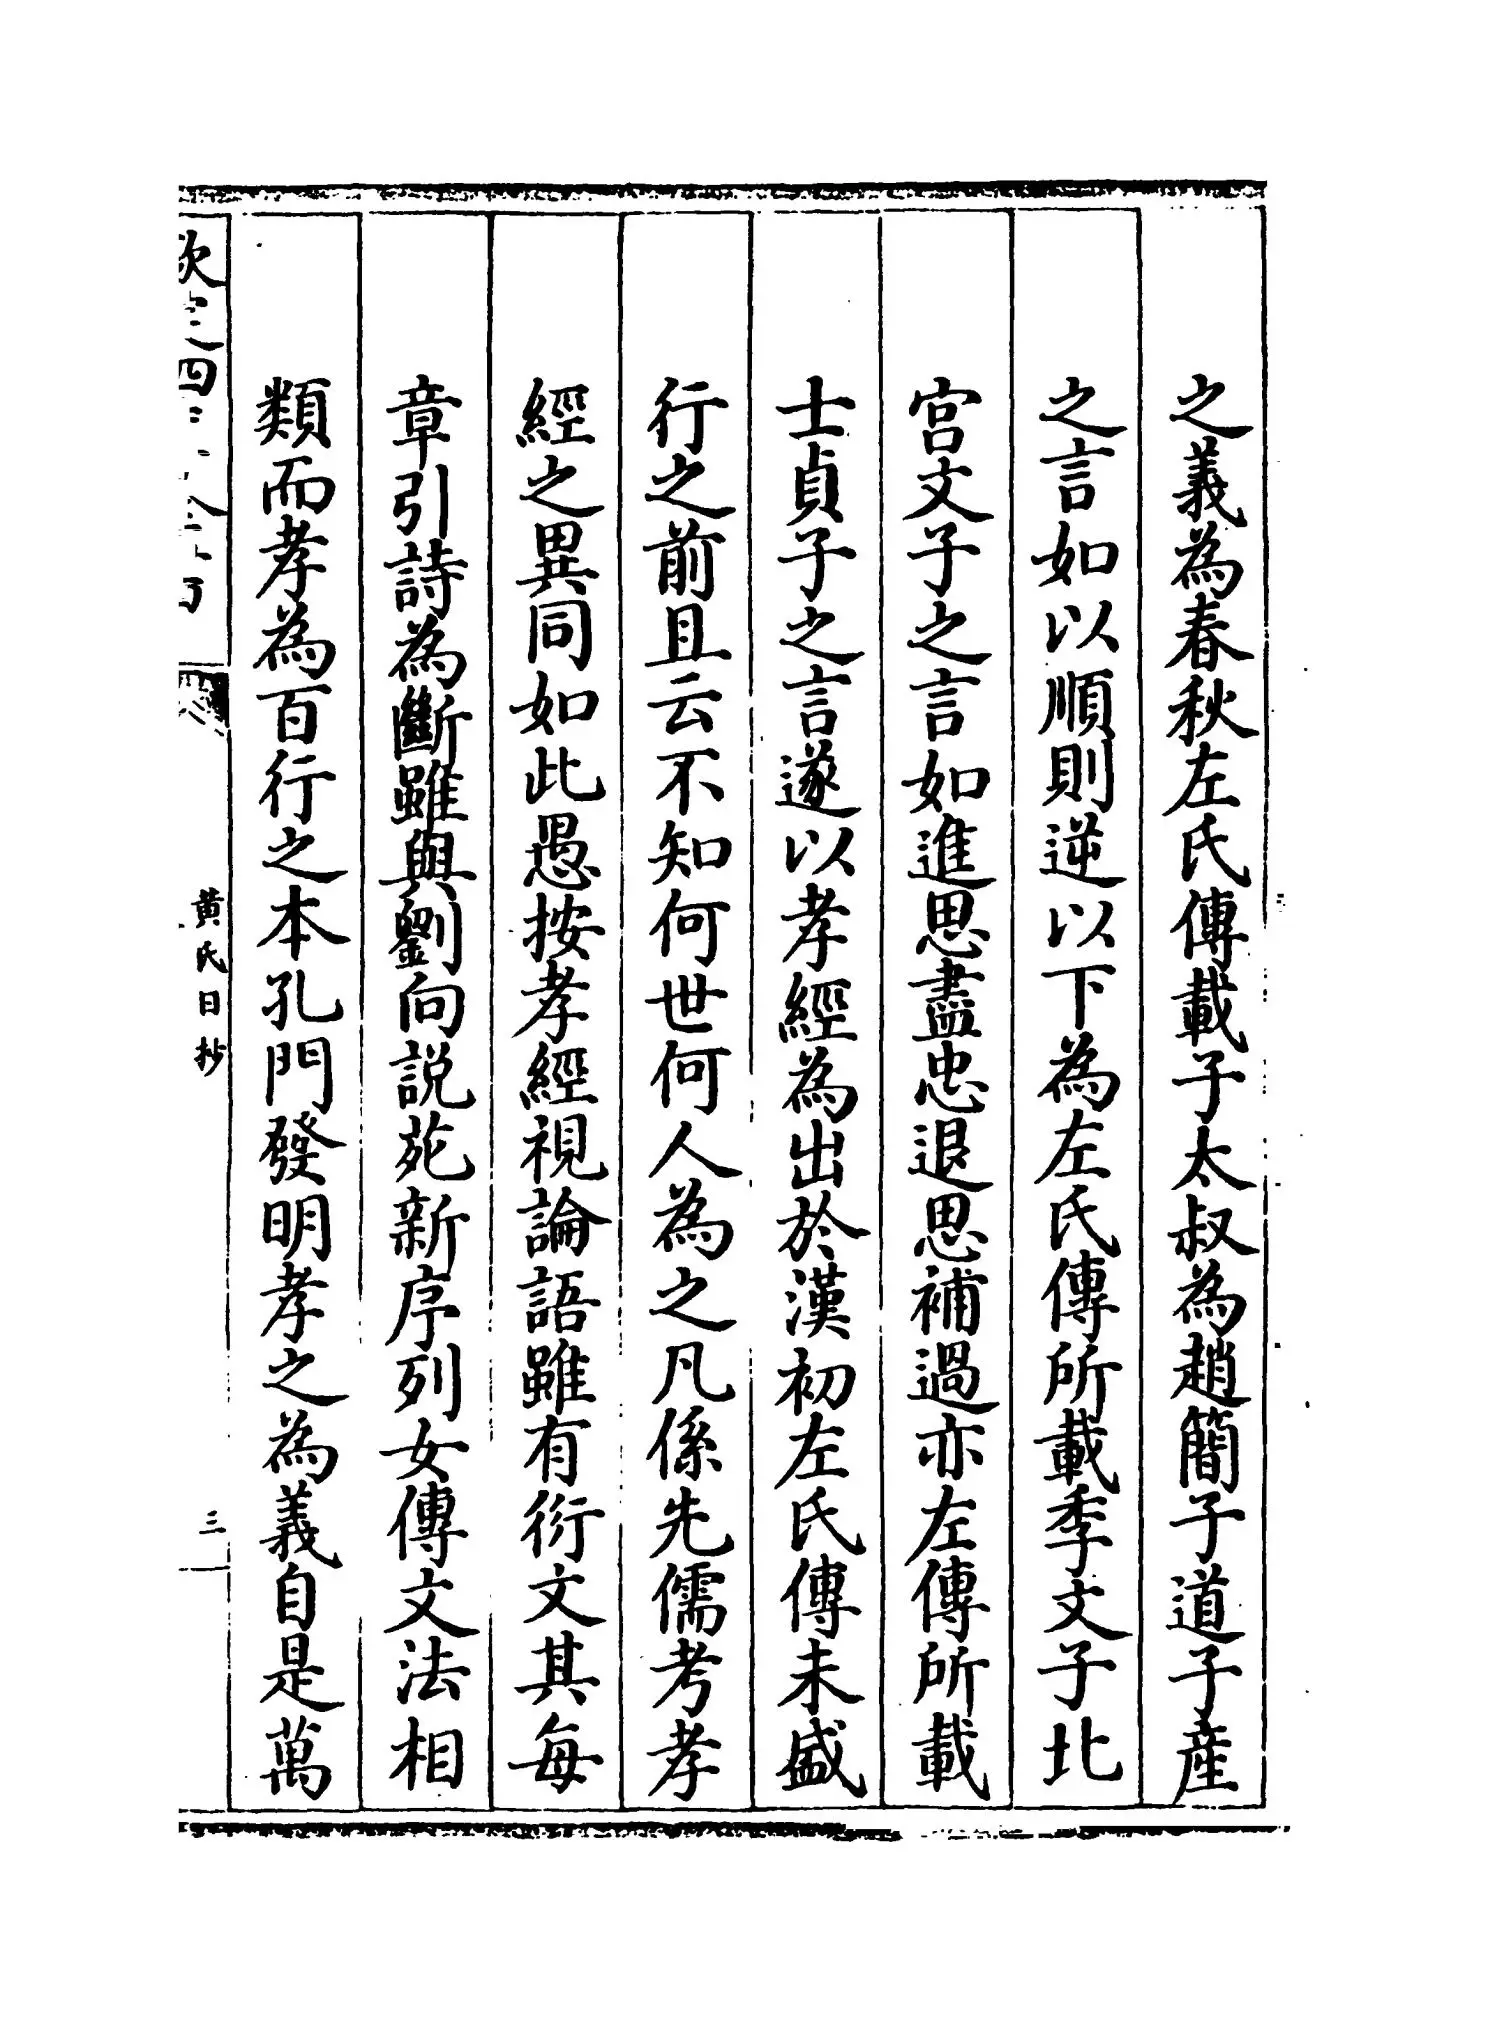 之義為春秋左氏傳載子太叔為趙簡子道子產
之言如以順則逆以下為左氏傳所載季文子北
宫文子之言如進思盡忠退思補過亦左傳所載
士貞子之言遂以孝經為出於漢初左氏傳未盛
行之前且云不知何世何人為之凡係先儒考孝
經之異同如此愚按孝經視論語雖有衍文其每
章引詩為斷雖與劉向説苑新序列女傳文法相
類而孝為百行之本孔門發明孝之為義自是萬
黃氏日抄
三